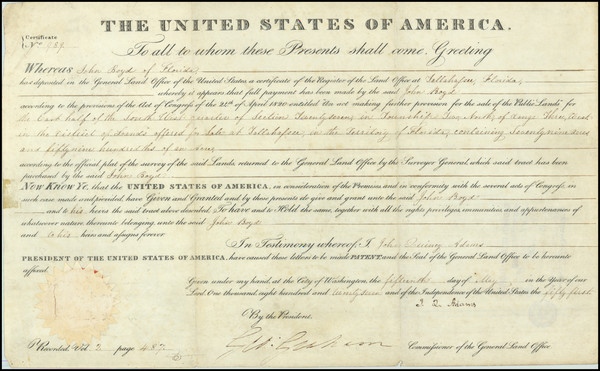 THE UNITED STATES OF AMERICA.
Certificate
No.
To all to whom these Presents shall come, Greeting
Whereas John Boyd of Florida
has deposited in the General Land Office of the United States, a certificate of the Register of the Land Office at Tallahassee, Florida,
whereby it appears that full payment has been made by the said John Boyd
according to the provisions of the Act of Congress of the 24th of April 1820 entitled "An act making further provision for the sale of the Public Lands" for
the East half of the South West quarter of Section Twenty seven in Township Two North, of range Three, West
in the district of lands offered for Sale at Tallahassee, in the Territory of Florida, containing Seventy nine acres
and fifty nine hundredths of an acre
according to the official plat of the survey of the said Lands returned to the General Land Office by the Surveyor General, which said tract has been
purchased by the said John Boyd
NOW KNOW YE, that the UNITED STATES OF AMERICA, in consideration of the Premises and in conformity with the several acts of Congress, in
such case made and provided, have Given and Granted and by these presents do give and grant unto the said John Boyd
and to his heirs the said tract above described. To have and to Hold the same, together with all the rights, privileges, immunities and appurtenances of
whatsoever nature thereunto belonging unto the said John Boyd
and to his heirs and assigns forever
In Testimony whereof, I, John Quincy Adams
PRESIDENT OF THE UNITED STATES OF AMERICA, have caused these letters to be made PATENT, and the Seal of the General Land Office to be hereunto
affixed.
Given under my hand, at the City of Washington, the fifteenth day of May in the Year of our
Lord One thousand, eight hundred and twenty seven and of the Independence of the United States the fifty first
J. Q. Adams
By the President.
Geo: Graham Commissioner of the General Land Office
Recorded Vol. 2 page 487